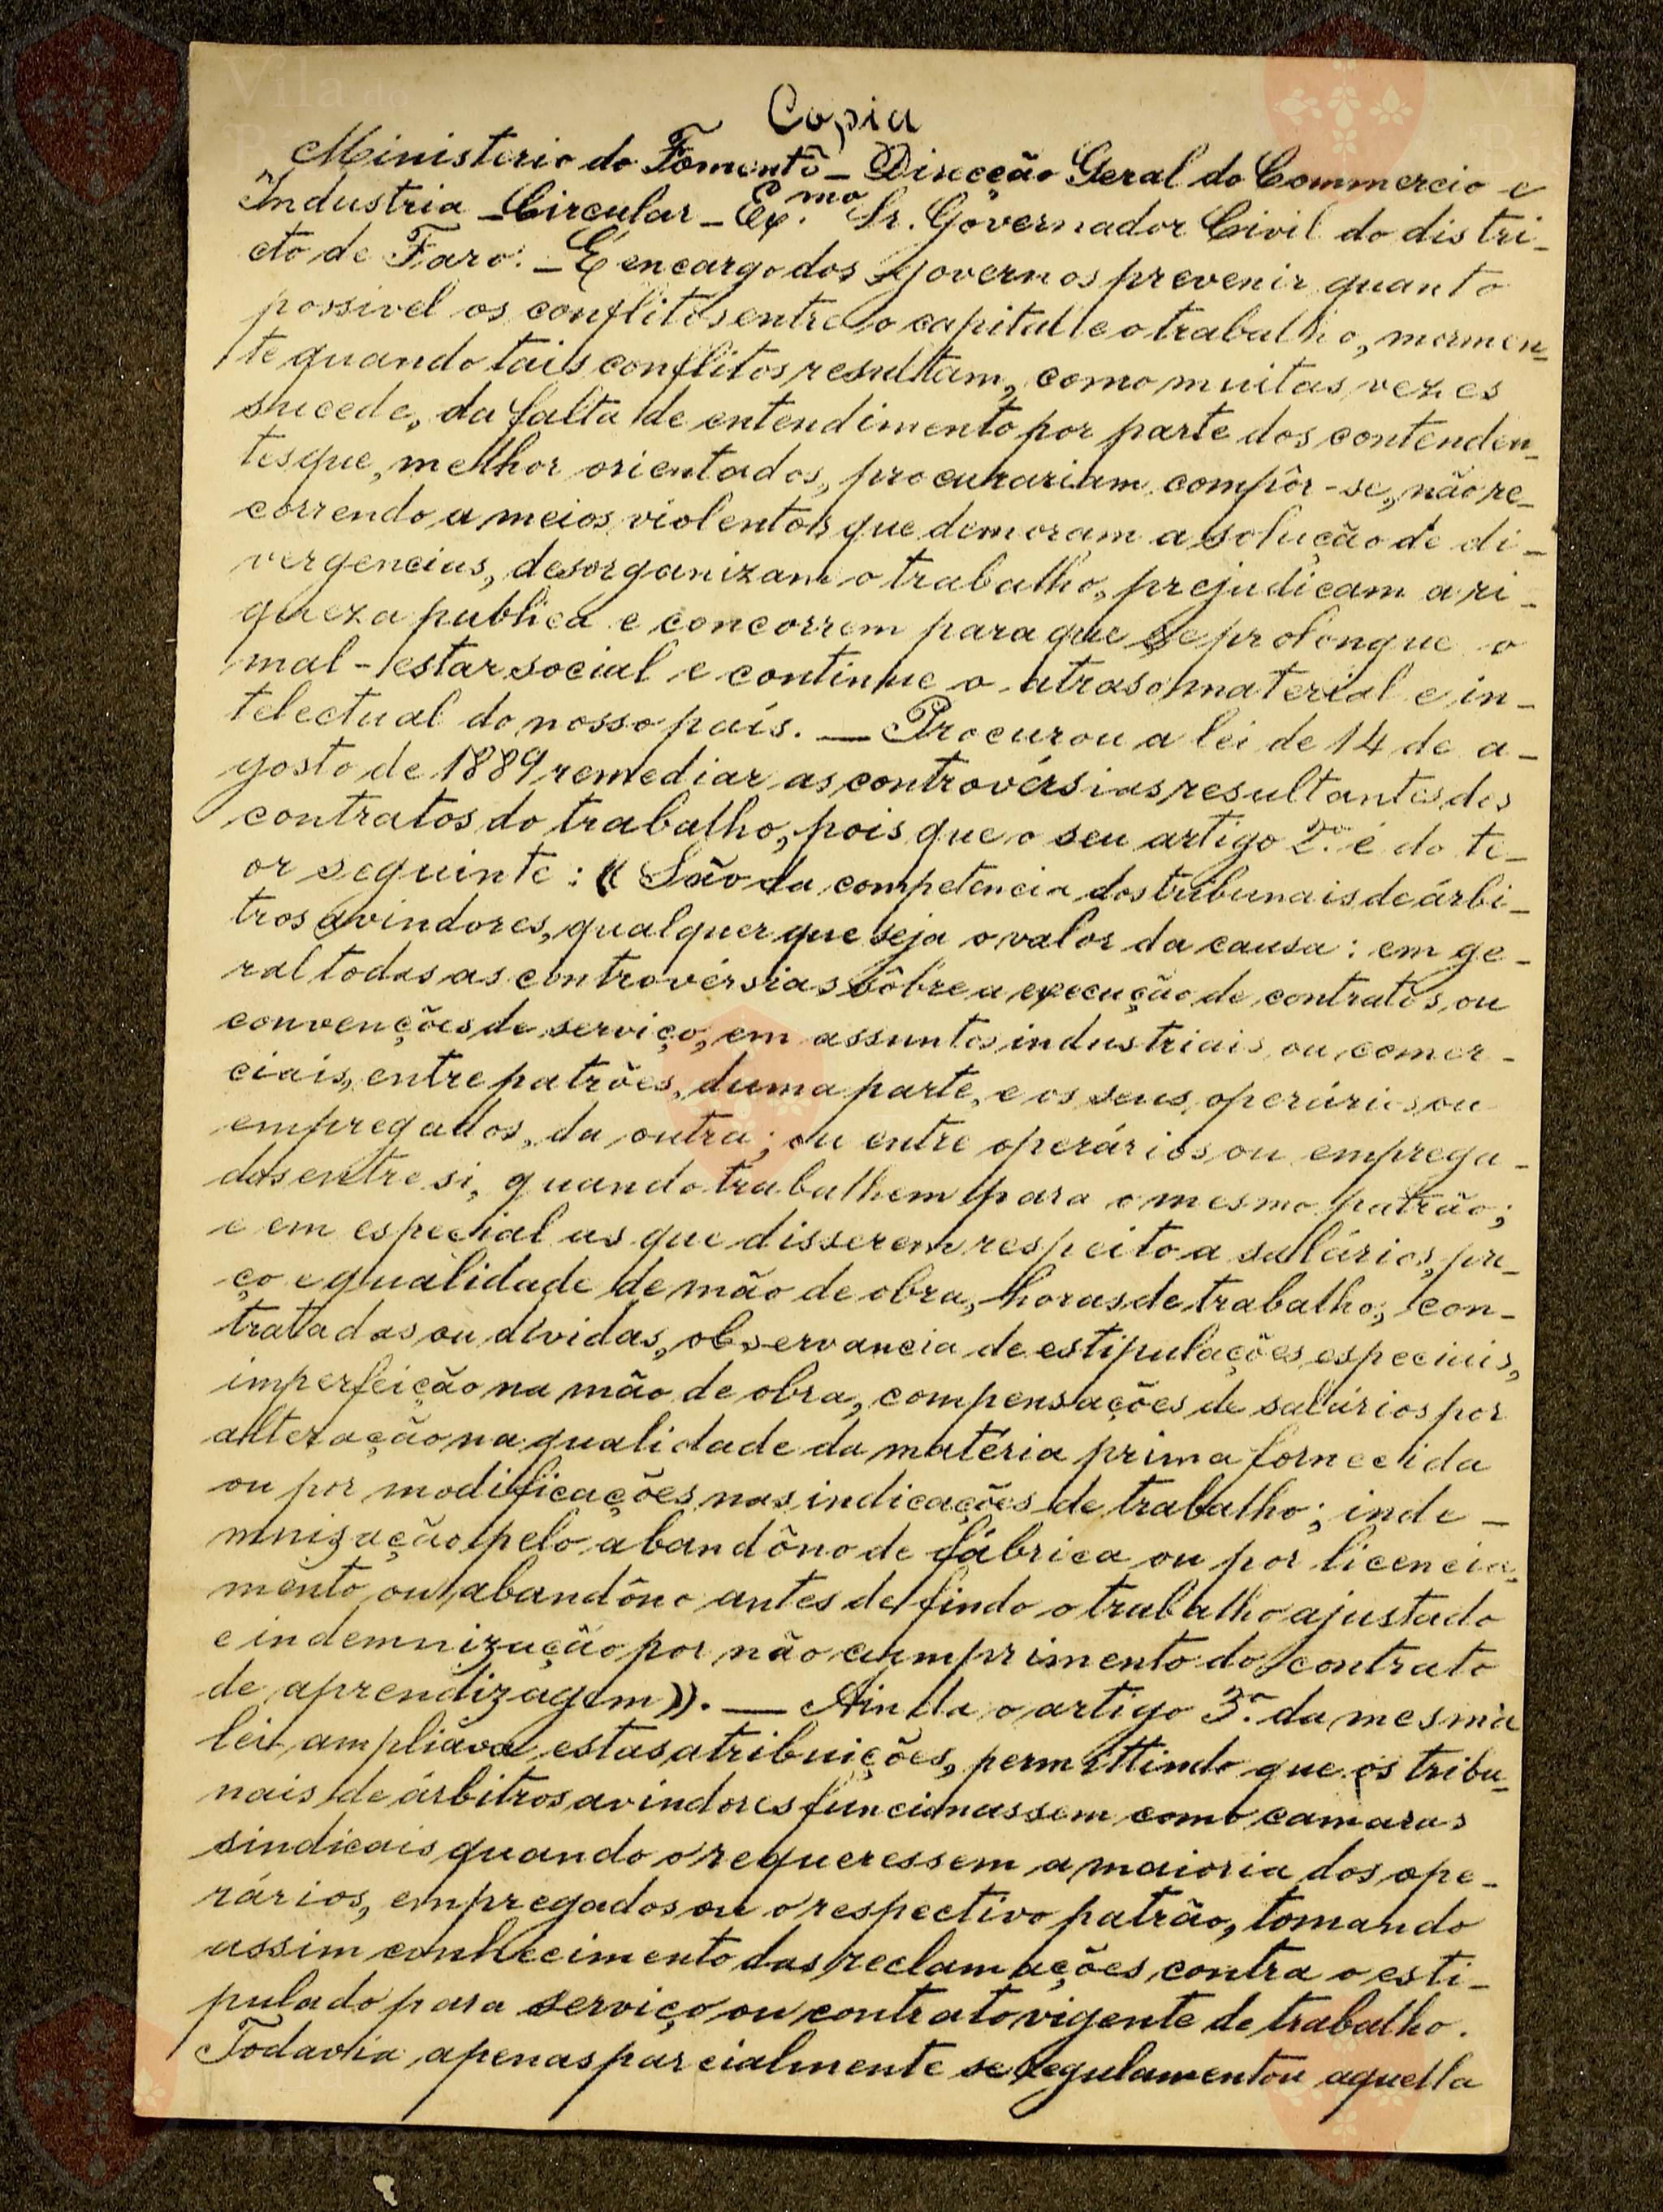 Copia
Ministerio do Fomento – Direcção Geral do Commercio e
Industria – Circular – Ex.mo Sr. Governador Civil do distri-
cto de Faro. – É encargo dos governos prevenir quanto
possivel os conflitos entre o capital e o trabalho, mormen-
te quando tais conflitos resultam, como muitas vezes
sucede, da falta de entendimento por parte dos contenden-
tes que, melhor orientados, procurariam compôr-se, não re-
correndo a meios violentos que demoram a solução de di-
vergencias, desorganizam o trabalho, prejudicam a ri-
queza publica e concorrem para que se prolongue o
mal-estar social e continue o atraso material e in-
telectual do nosso país. — Procurou a lei de 14 de a-
gosto de 1889 remediar as controvérsias resultantes dos
contratos do trabalho, pois que o seu artigo 2.º é do te-
or seguinte: « São da competencia dos tribunais de árbi-
tros avindores, qualquer que seja o valor da causa: em ge-
ral todas as controvérsias sôbre a execução de contratos, ou
convenções de serviço, em assuntos industriais ou comer-
ciais, entre patrões, duma parte, e os seus operários ou
empregados, da outra; ou entre operários ou emprega-
dos entre si, quando trabalhem para o mesmo patrão;
e em especial as que disserem respeito a salários, pre-
ço e qualidade de mão de obra, horas de trabalho, con-
tratadas ou dividas, observancia de estipulações especiais,
imperfeição na mão de obra, compensações de salários por
alteração na qualidade da matéria prima fornecida
ou por modificações nas indicações de trabalho; inde-
mnização pelo abandôno de fábrica ou por licencia-
mento ou abandôno antes de findo o trabalho ajustado
e indemnização por não cumprimento do contrato
de aprendizagem ». — Ainda o artigo 3.º da mesma
lei ampliava estas atribuições, permittindo que os tribu-
nais de árbitros avindores funcionassem como camaras
sindicais quando o requeressem a maioria dos ope-
rários, empregados ou o respectivo patrão, tomando
assim conhecimento das reclamações contra o esti-
pulado para serviço ou contrato vigente de trabalho.
Todavia apenas parcialmente se regulamentou aquella
Vila do
Bispo